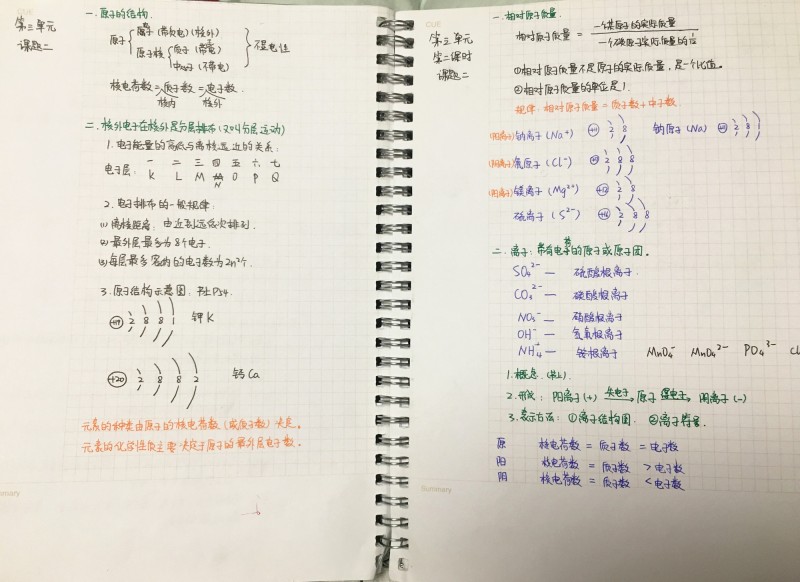 CUE
第三单元
课题二
一.原子的结构.
原子 电子(带负电)(核外)
原子核 质子(带正电)
中子(不带电)
不显电性
核电荷数=质子数=电子数.
核内 核外
二.核外电子在核外是分层排布(又叫分层运动)
1.电子能量的高低与离核远近的关系:
电子层: 一 二 三 四 五 六 七
K L M N O P Q
2.电子排布的一般规律:
(1)离核距离:由近到远依次排列.
(2)最外层最多为8个电子.
(3)每层最多容纳的电子数为2n²个.
3.原子结构示意图:书上P54.
+19 2 8 8 1 钾K
+20 2 8 8 2 钙Ca
元素的种类由原子的核电荷数(或质子数)决定。
元素的化学性质主要决定于原子的最外层电子数。
Summary
CUE
第三单元
第二课时
课题二
一.相对原子质量.
相对原子质量= 一个某原子的实际质量
一个碳原子实际质量的1/12
①相对原子质量不是原子的实际质量,是一个比值。
②相对原子质量的单位是1.
规律:相对原子质量=质子数+中子数
(阳离子)钠离子(Na⁺) +11 2 8 钠原子(Na) +11 2 8 1
(阴离子) (Cl⁻) 2 8 8
(阳离子)镁离子(Mg²⁺) +12 2 8
硫离子(S²⁻) +16 2 8 8
二.离子:带有电荷的原子或原子团。
SO₄²⁻ — 硫酸根离子
CO₃²⁻ — 碳酸根离子
NO₃⁻ — 硝酸根离子
OH⁻ — 氢氧根离子
NH₄⁺ — 铵根离子 MnO₄⁻ MnO₄²⁻ PO₄³⁻ Cl
1.概念.(书上).
2.形成:阳离子(+) 失电子 原子 得电子 阴离子(-)
3.表示方法:①离子结构图. ②离子符号.
原 核电荷数=质子数=电子数
阳 核电荷数=质子数>电子数
阴 核电荷数=质子数<电子数
Summary